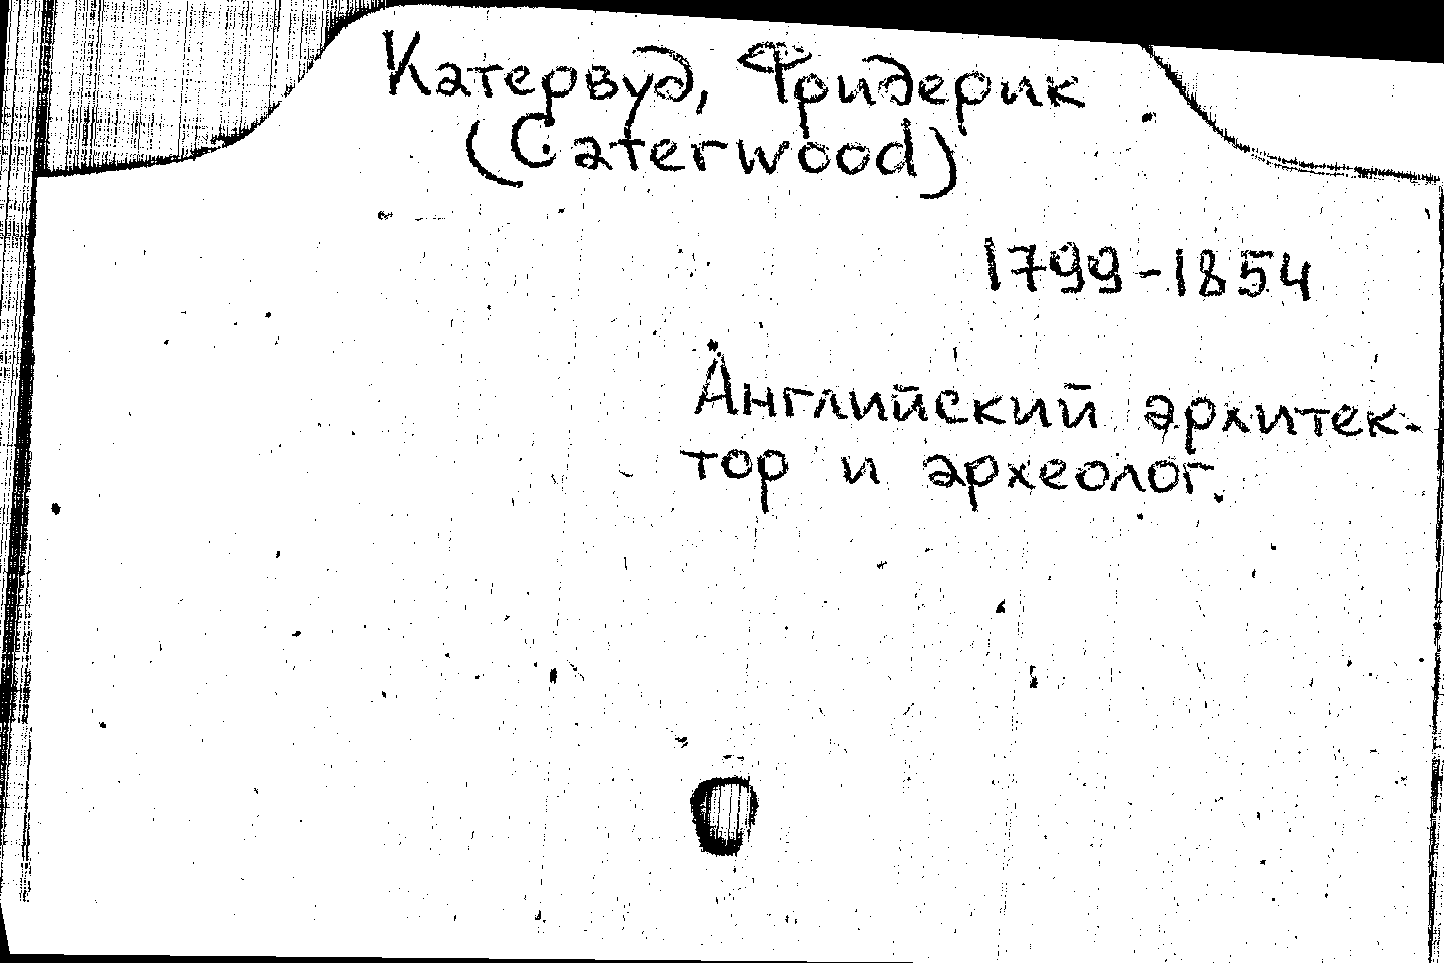 Катервуд, Фридерик
(Caterwood)
1799-1854
Английский архитек-
тор и археолог.